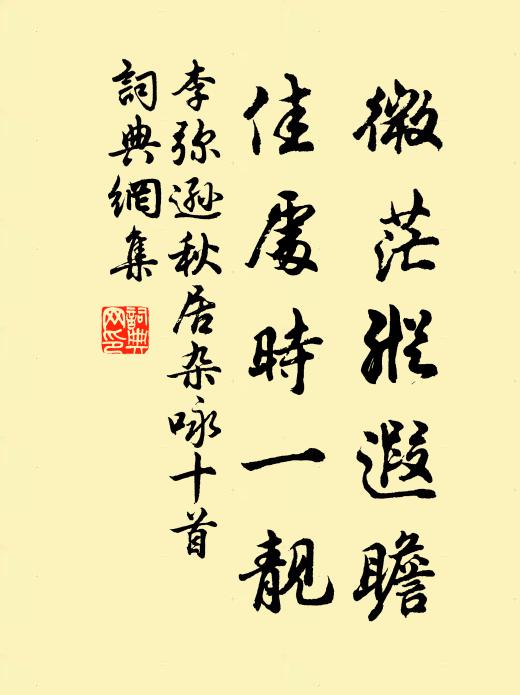 微茫縱遐瞻
佳處時一靚
李弥遜秋居杂咏十首
詞典網集
詞典網印